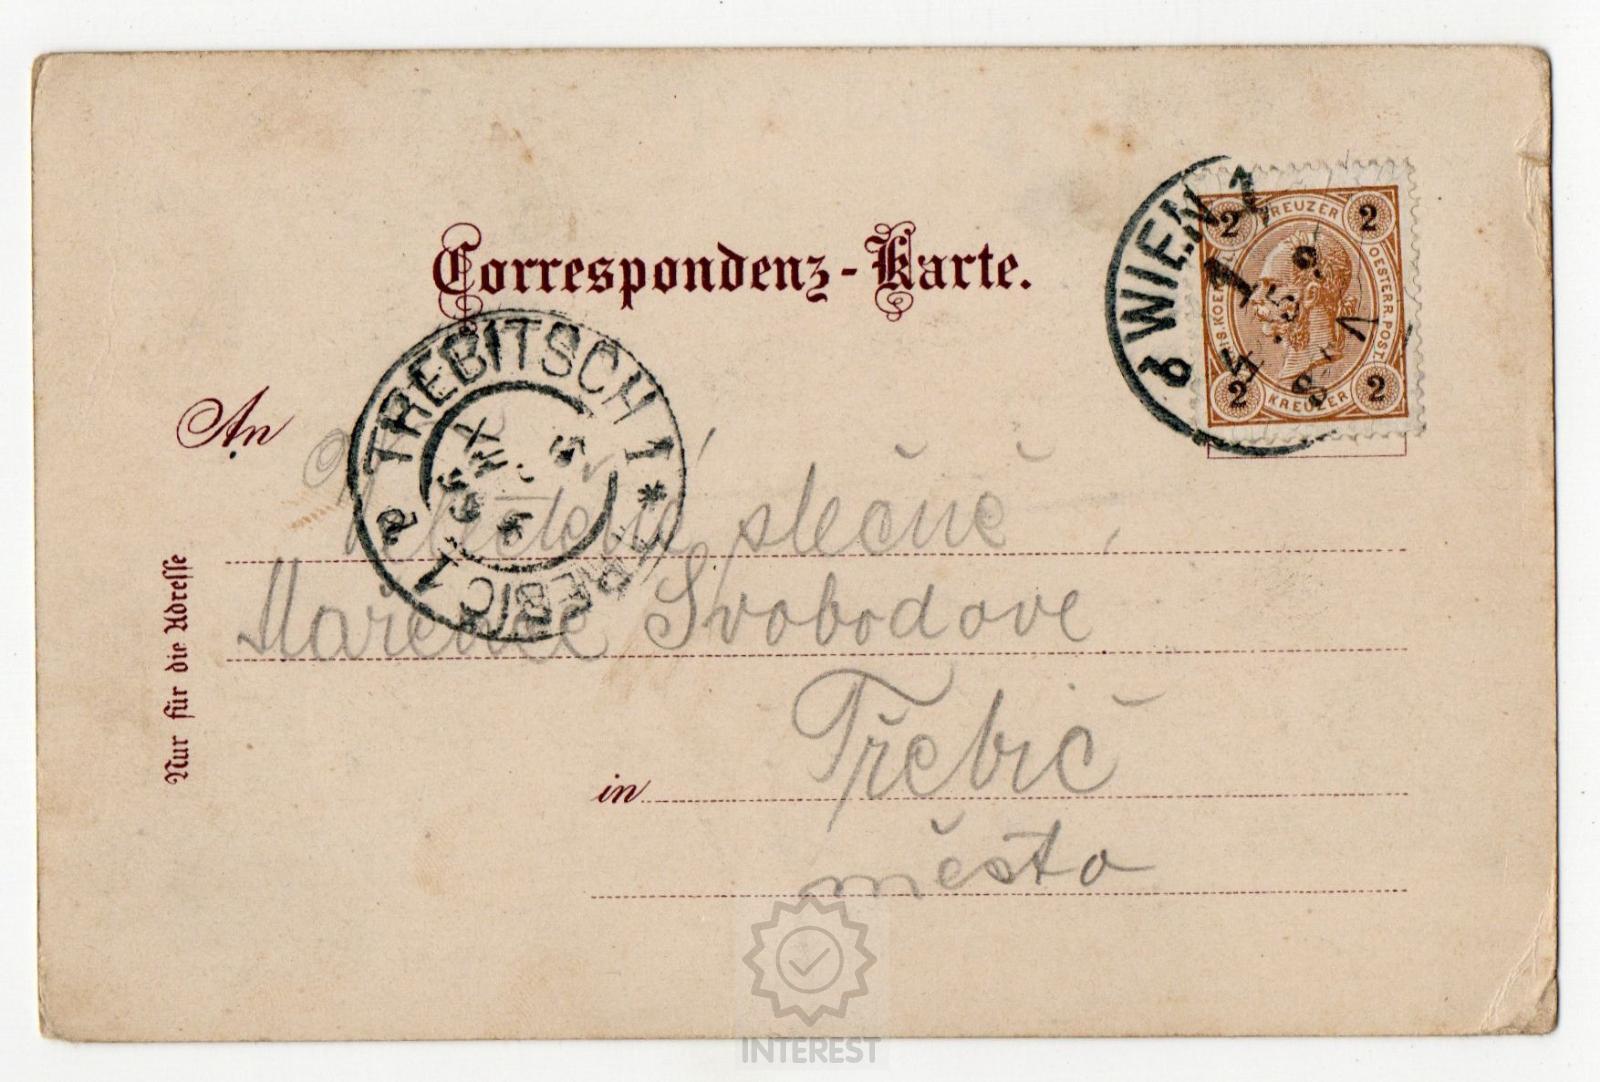 Correspondenz-Karte.
WIEN 1
2 KREUZER 2
OESTERR. POST.
2 KREUZER 2
TREBITSCH 1 *
TŘEBIČ 1
An
slečně
Mařence Svobodove
in Třebíč
město
Nur für die Adresse
INTEREST